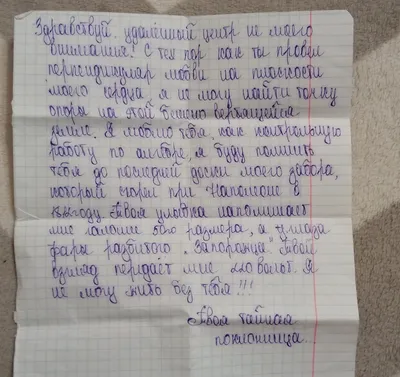 Здравствуй удалённый центр не моего
внимания! С тех пор как ты провел
перпендикуляр любви на плоскости
моего сердца, я не могу найти точку
опоры на этой бешено вертящейся
земле. Я люблю тебя, как контрольную
работу по алгебре, я буду помнить
тебя до последней доски моего забора,
который сгорел при Наполеоне в
году. Твоя улыбка напоминает
мне галоши 50го размера, а глаза
фары разбитого "Запорожца". Твой
взгляд передаёт мне 220 вольт. Я
не могу жить без тебя!!!
Твоя тайная
поклонница...